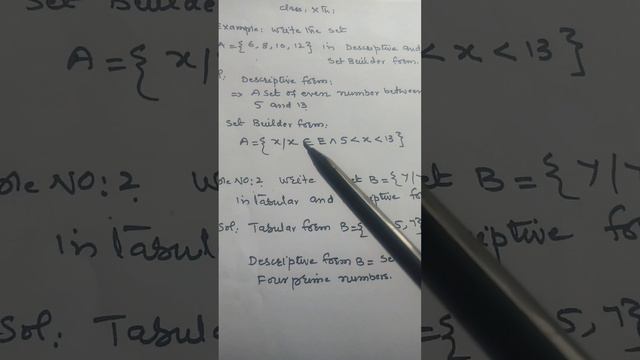 class, Xth,
Example: Write the set
A = {6, 8, 10, 12} in Descriptive and
Set Builder form.
Descriptive form:
⇒ A set of even number between
5 and 13
Set Builder form:
A = {x/x ∈ E ∧ 5 < x < 13}
NO: 2 Write B = {y/
in Tabular and form
Sol: Tabular form B = { 5, 7}
Descriptive form B =
Four prime numbers.